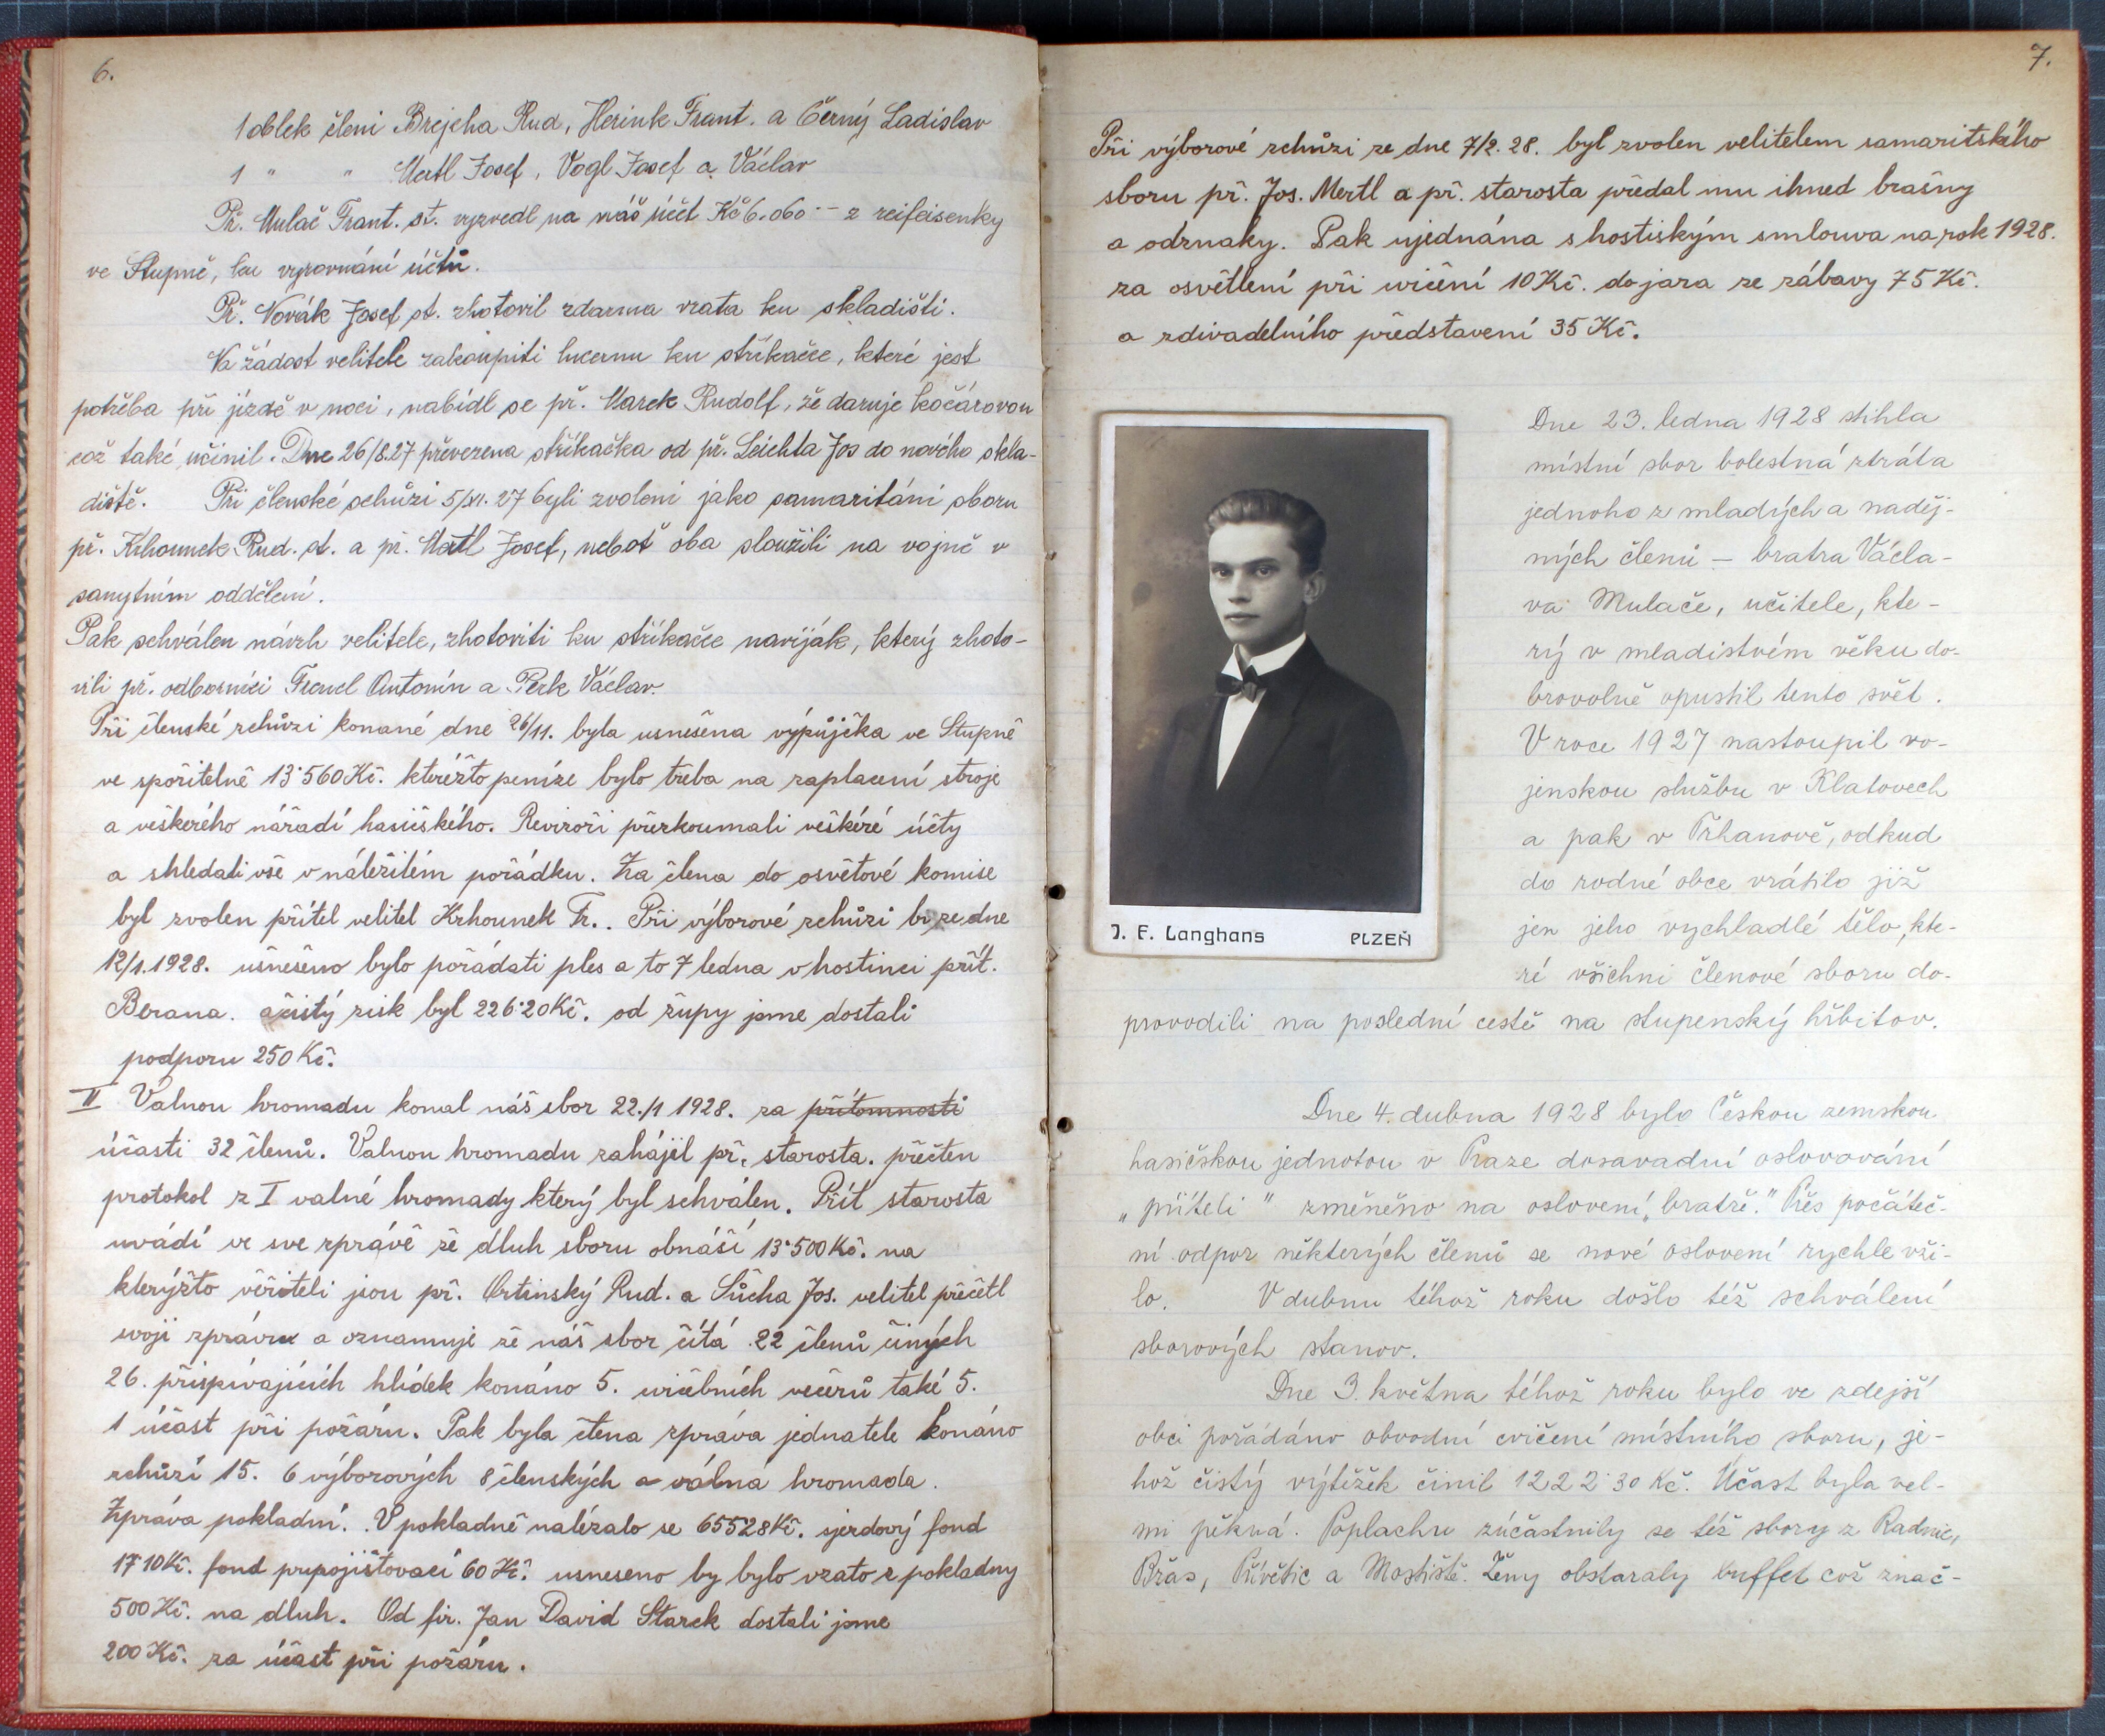 6.
1 oblek členi Brejcha Rud, Herink Frant. a Černý Ladislav
1 " " Mertl Josef, Vogl Josef a Václav
Př. Mulač Frant. st. vyzvedl na náš účet Kč 6.060 – z reifeisenky
ve Stupně, ku vyrovnání účtů.
Př. Novák Josef st. zhotovil zdarma vrata ku skladišti.
Na žádost velitele zakoupiti lucernu ku stříkačce, které jest
potřeba při jízdě v noci, nabídl se př. Marek Rudolf, že daruje kočárovou
což také učinil. Dne 26/8.27 převezena stříkačka od př. Leichta Jos do nového skla-
diště. Při členské schůzi 5/XI. 27 byli zvoleni jako samaritáni sboru
př. Krhounek Rud. st. a př. Mertl Josef, neboť oba sloužili na vojně v
sanytním oddělení.
Pak schválen návrh velitele, zhotoviti ku stříkačce naviják, který zhoto-
vili př. odborníci Frencl Antonín a Perk Václav.
Při členské schůzi konané dne 26/11. byla usnešena výpůjčka ve Stupně
ve spořitelně 13˙560 Kč. kteréžto peníze bylo třeba na zaplacení stroje
a veškerého nářadí hasičského. Revizoři přezkoumali veškéré účty
a shledali vše v náležitém pořádku. Za člena do osvětové komise
byl zvolen přítel velitel Krhounek Fr.. Při výborové schůzi ze dne
12/1.1928. usnešeno bylo pořádati ples a to 7 ledna v hostinci přít.
Berana. a čistý zisk byl 226˙20 Kč. od župy jsme dostali
podporu 250 Kč.
II Valnou hromadu konal náš sbor 22./1 1928. za přítomnosti
účasti 32 členů. Valnou hromadu zahájil př. starosta. přečten
protokol z I valné hromady který byl schválen. Přít starosta
uvádí ve sve zprávě že dluh sboru obnáší 13˙500 Kč. na
kterýžto věřiteli jsou př. Ortinský Rud. a Sůcha Jos. velitel přečetl
svoji zprávu a oznamuje že náš sbor čítá 22 členů činých
26. přispívajících hlídek konáno 5. cvičebních večerů také 5.
1 účast při požáru. Pak byla čtena zpráva jednatele konáno
schůzí 15. 6 výborových 8 členských a válná hromada.
Zpráva pokladní. V pokladně nalézalo se 65528 Kč. sjezdový fond
17˙10 Kč. fond pripojišťovací 60 Kč. usneseno by bylo vzato z pokladny
500 Kč. na dluh. Od fir. Jan David Starek dostali jsme
200 Kč. za účast při požáru.
7.
Při výborové schůzi ze dne 7/2. 28. byl zvolen velitelem samaritského
sboru př. Jos. Mertl a př. starosta předal mu ihned brašny
a odznaky. Pak ujednána s hostiským smlouva na rok 1928.
za osvětlení při cvičení 10 Kč. do jara ze zábavy 75 Kč.
a z divadelního představení 35 Kč.
Dne 23. ledna 1928 stihla
místní sbor bolestná ztráta
jednoho z mladých a naděj-
ných členů – bratra Václa-
va Mulače, učitele, kte-
rý v mladistvém věku do-
brovolně opustil tento svět.
V roce 1927 nastoupil vo-
jenskou službu v Klatovech
a pak v Trhanově, odkud
do rodné obce vrátilo již
jen jeho vychladlé tělo, kte-
ré všichni členové sboru do-
provodili na poslední cestě na stupenský hřbitov.
J. F. Langhans PLZEŇ
Dne 4. dubna 1928 bylo Českou zemskou
hasičskou jednotou v Praze dosavadní oslovování
„příteli" změněno na oslovení „bratře." Přes počáteč-
ní odpor některých členů se nové oslovení rychle vži-
lo. V dubnu téhož roku došlo též schválení
sborových stanov.
Dne 3. května téhož roku bylo ve zdejší
obci pořádáno obvodní cvičení místního sboru, je-
hož čistý výtěžek činil 1222˙30 Kč. Účast byla vel-
mi pěkná. Poplachu zúčastnily se též sbory z Radnic,
Břas, Přívětic a Mostiště. Ženy obstaraly buffet což znač-